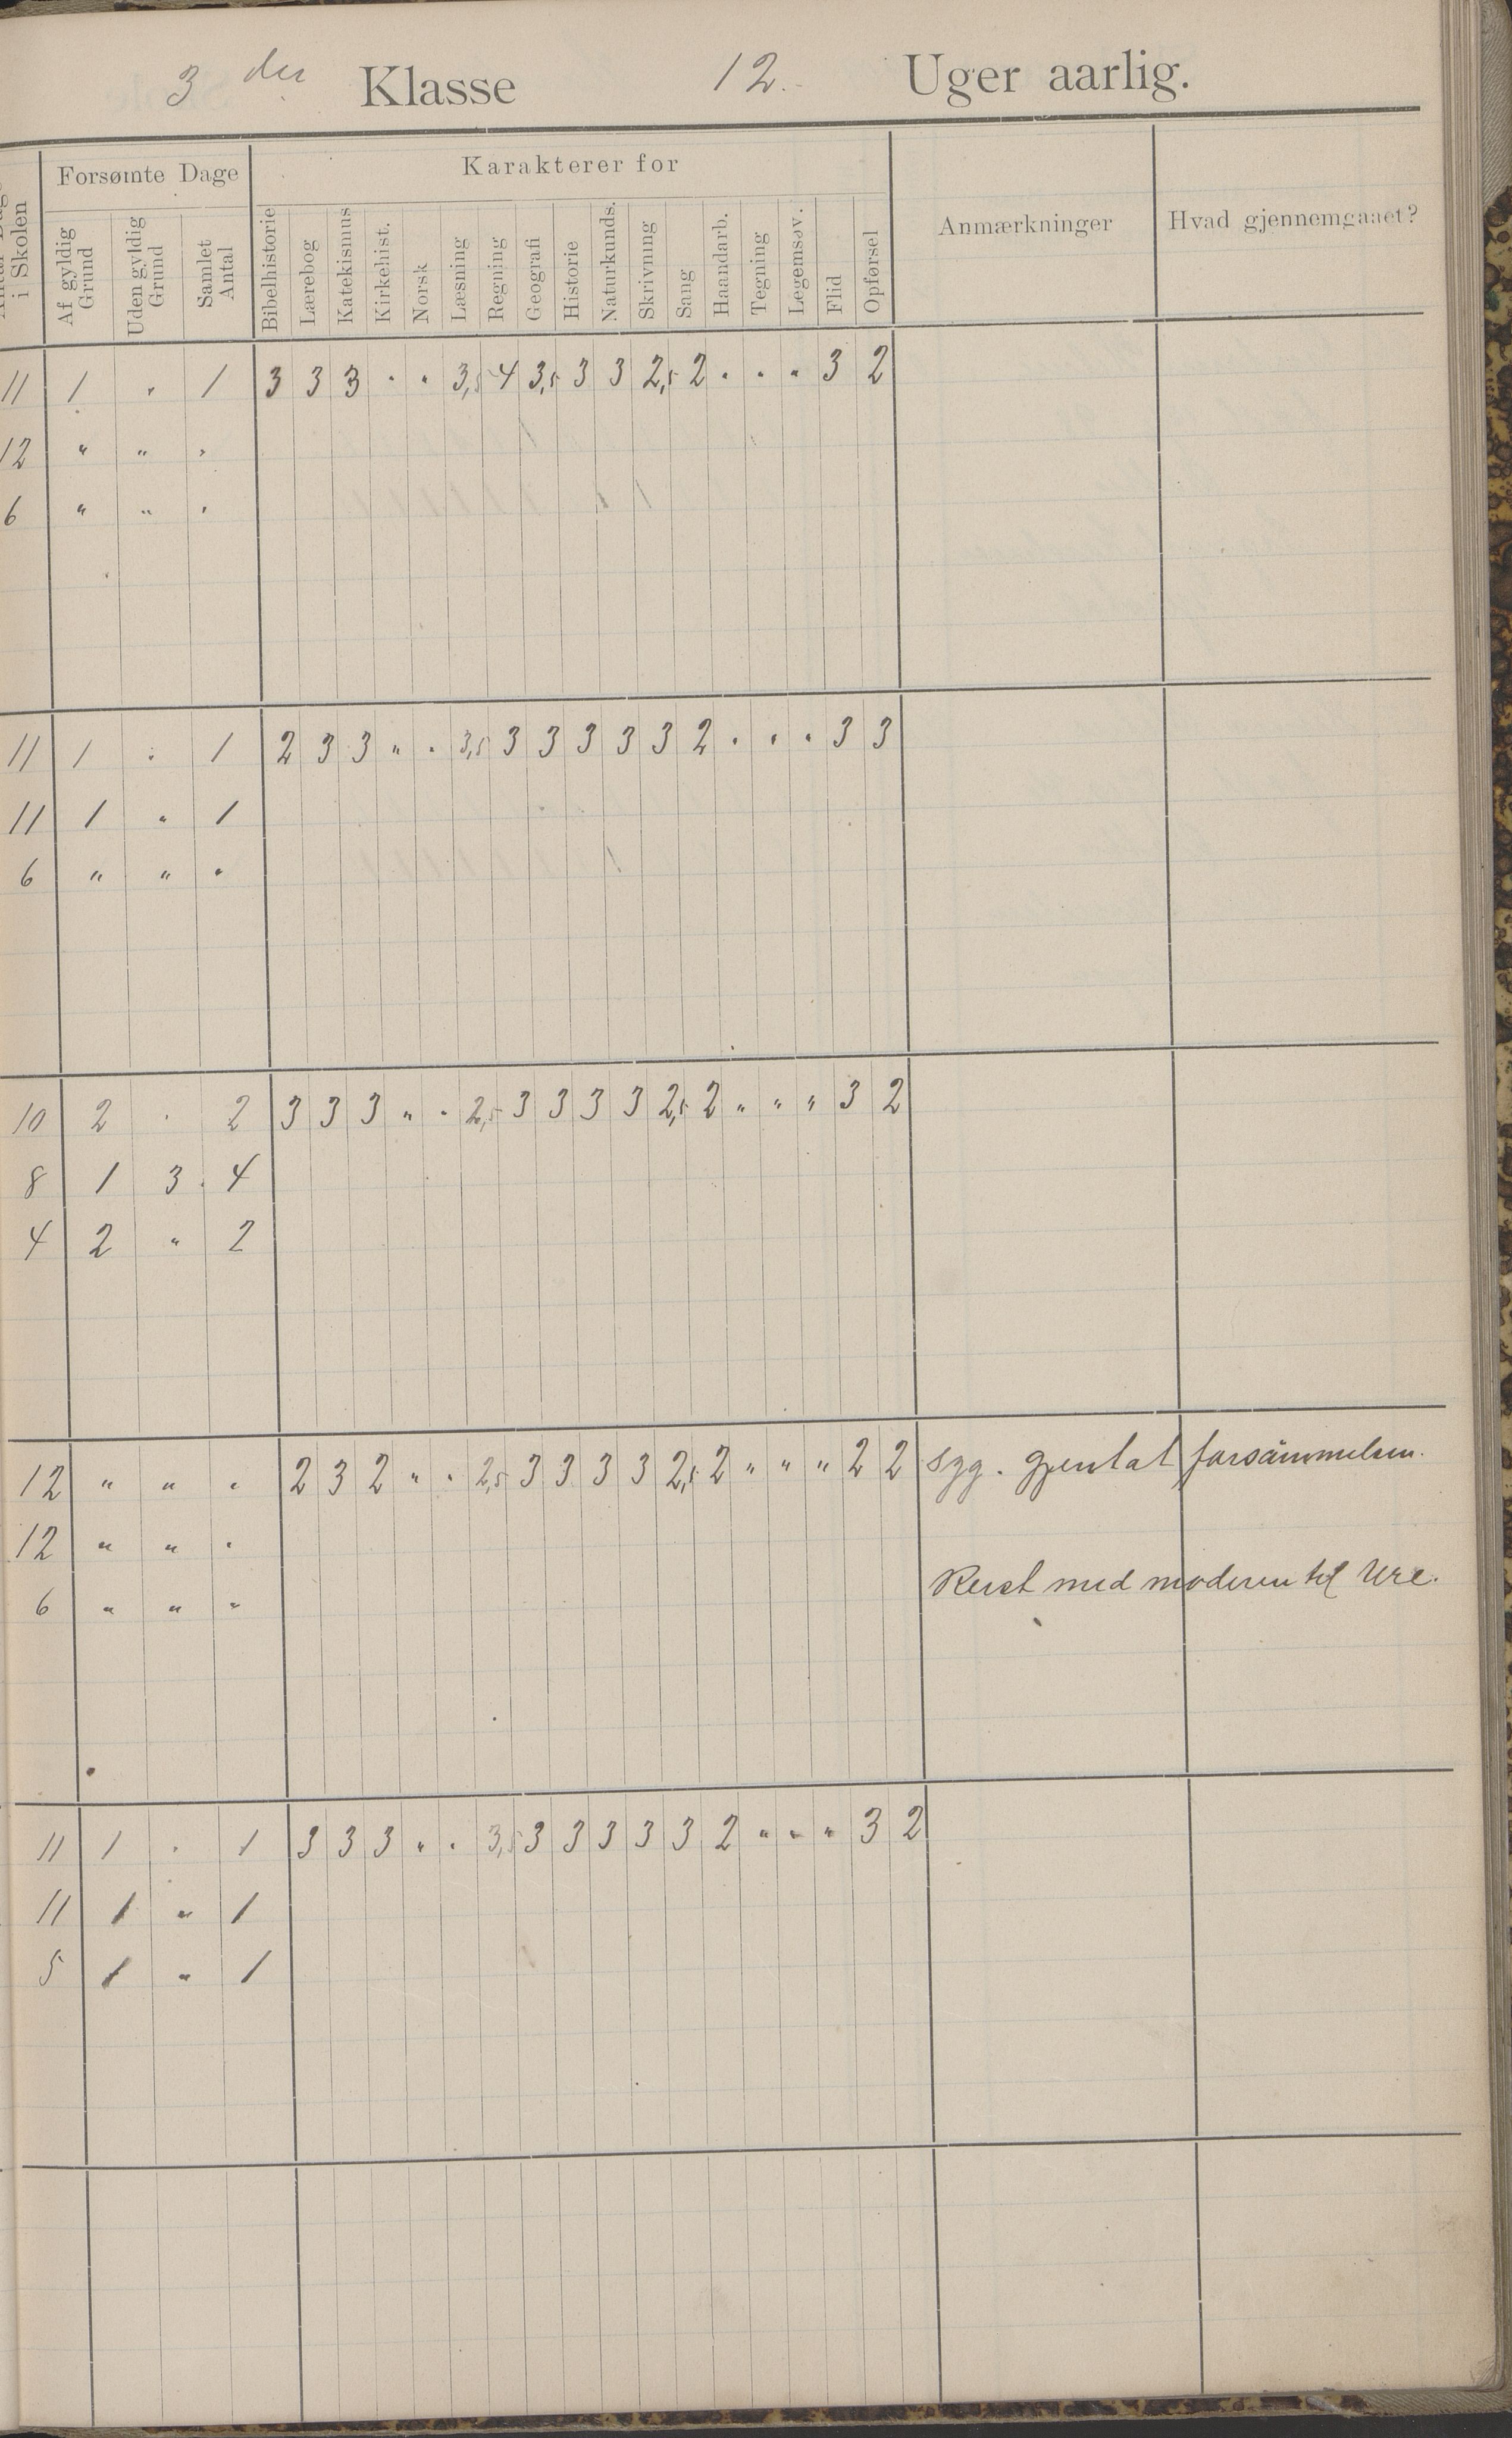 3 der Klasse 12. Uger aarlig.
i Skolen
Forsømte Dage
Karakterer for
Anmærkninger
Hvad gjennemgaaet?
Af gyldig Grund
Uden gyldig Grund
Samlet Antal
Bibelhistorie
Lærebog
Katekismus
Kirkehist.
Norsk
Læsning
Regning
Geografi
Historie
Naturkunds.
Skrivning
Sang
Haandarb.
Tegning
Legemsøv.
Flid
Opførsel
11 1 " 1 3 3 3 " " 3,5 4 3,5 3 3 2,5 2 " " " 3 2
12 " " "
6 " " "
11 1 " 1 2 3 3 " " 3,5 3 3 3 3 3 2 " " " 3 3
11 1 " 1
6 " " "
10 2 " 2 3 3 3 " " 2,5 3 3 3 3 2,5 2 " " " 3 2
8 1 3 4
4 2 " 2
12 " " " 2 3 2 " " 2,5 3 3 3 3 2,5 2 " " " 2 2 syg. gjentat forsømmelsen.
12 " " "
Reist med moderen til
6 " " "
11 1 " 1 3 3 3 " " 3,5 3 3 3 3 3 2 " " " 3 2
11 1 " 1
5 1 " 1